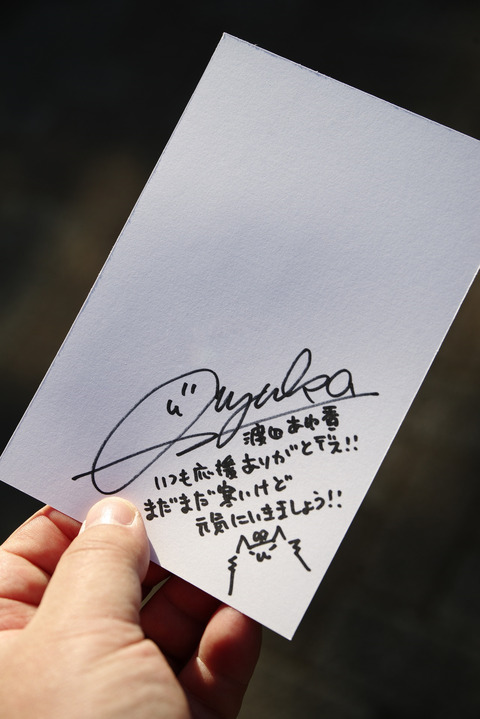 Ayuka
あゆ香
いつも応援ありがとデス!!
まだまだ寒いけど
元気にいきましょう!!